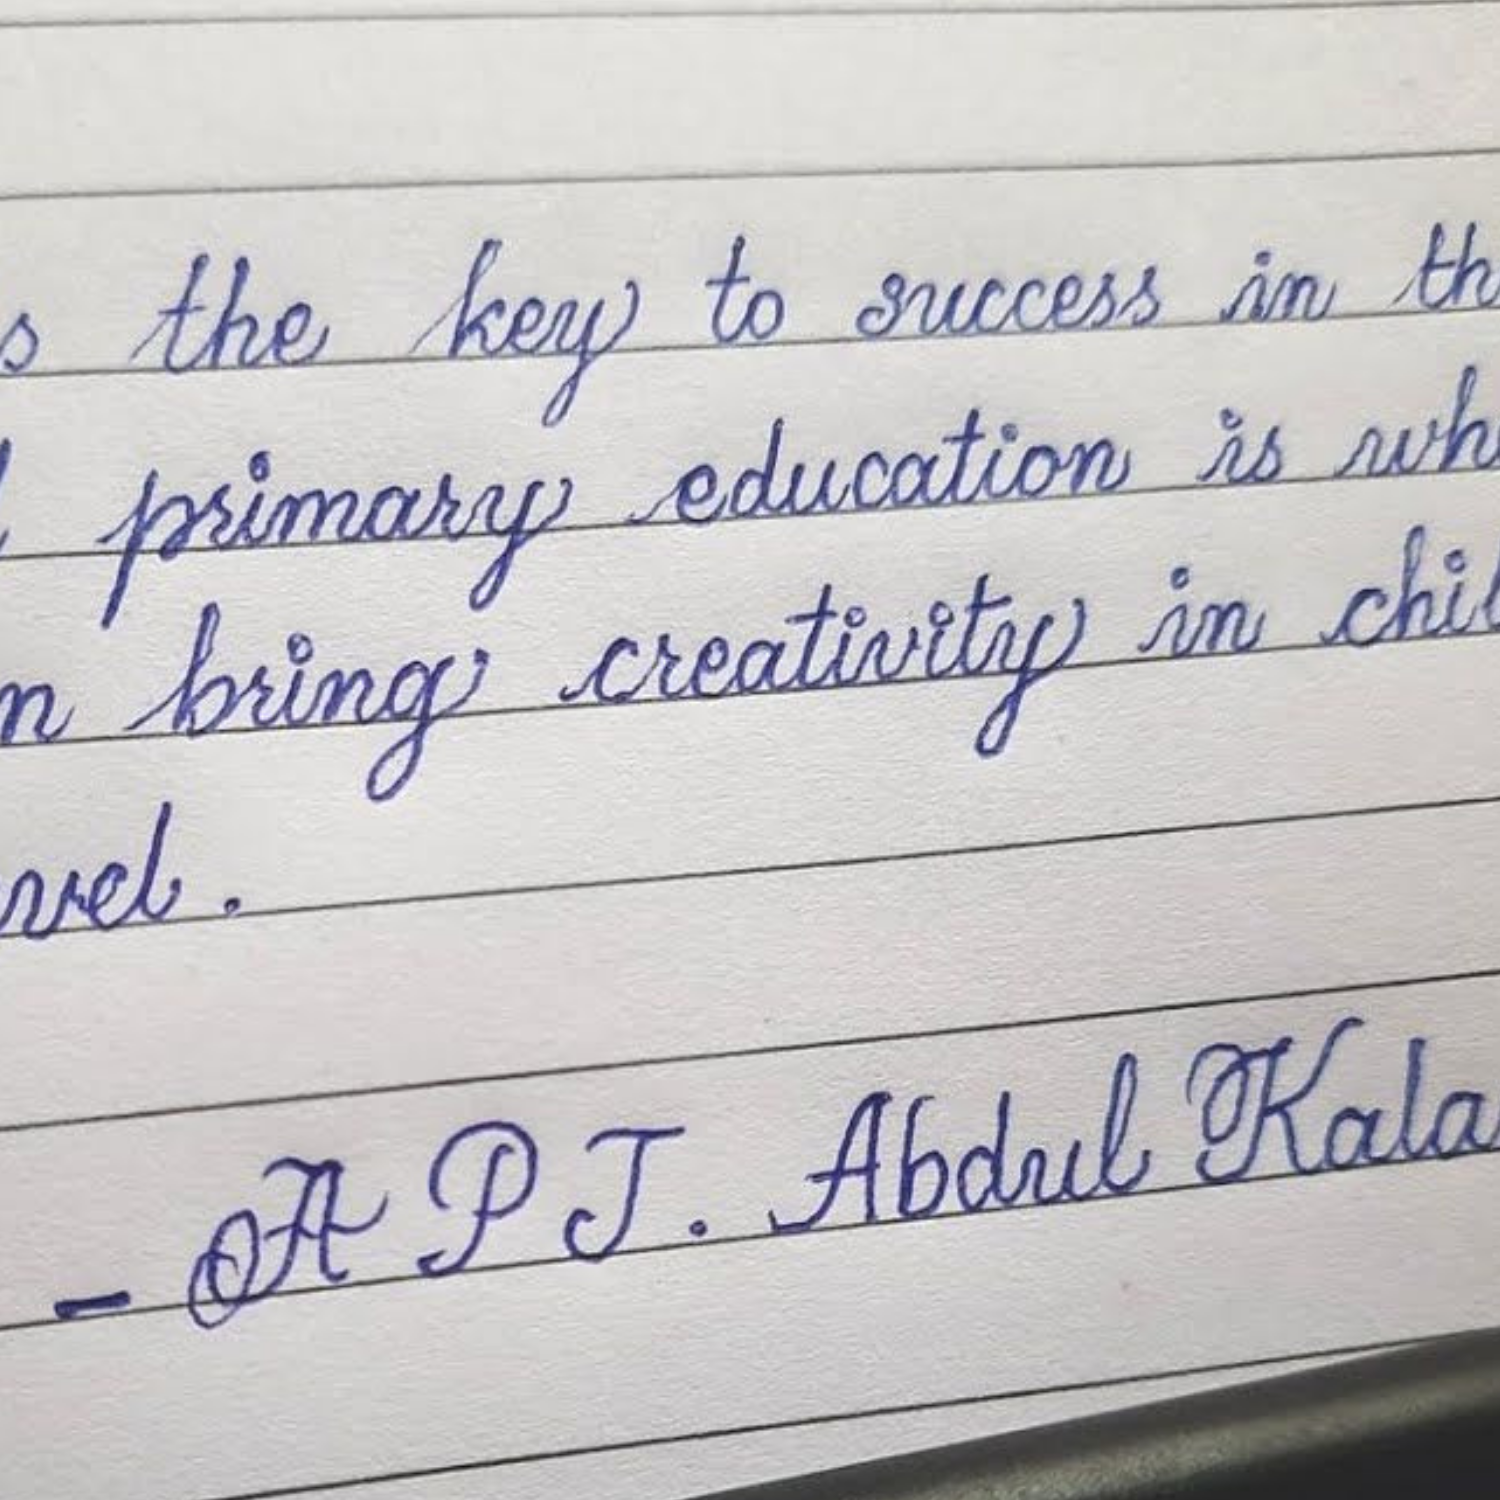 s the key to success in th
primary education is wh
n bring creativity in chil
vel.
- A P J. Abdul Kala